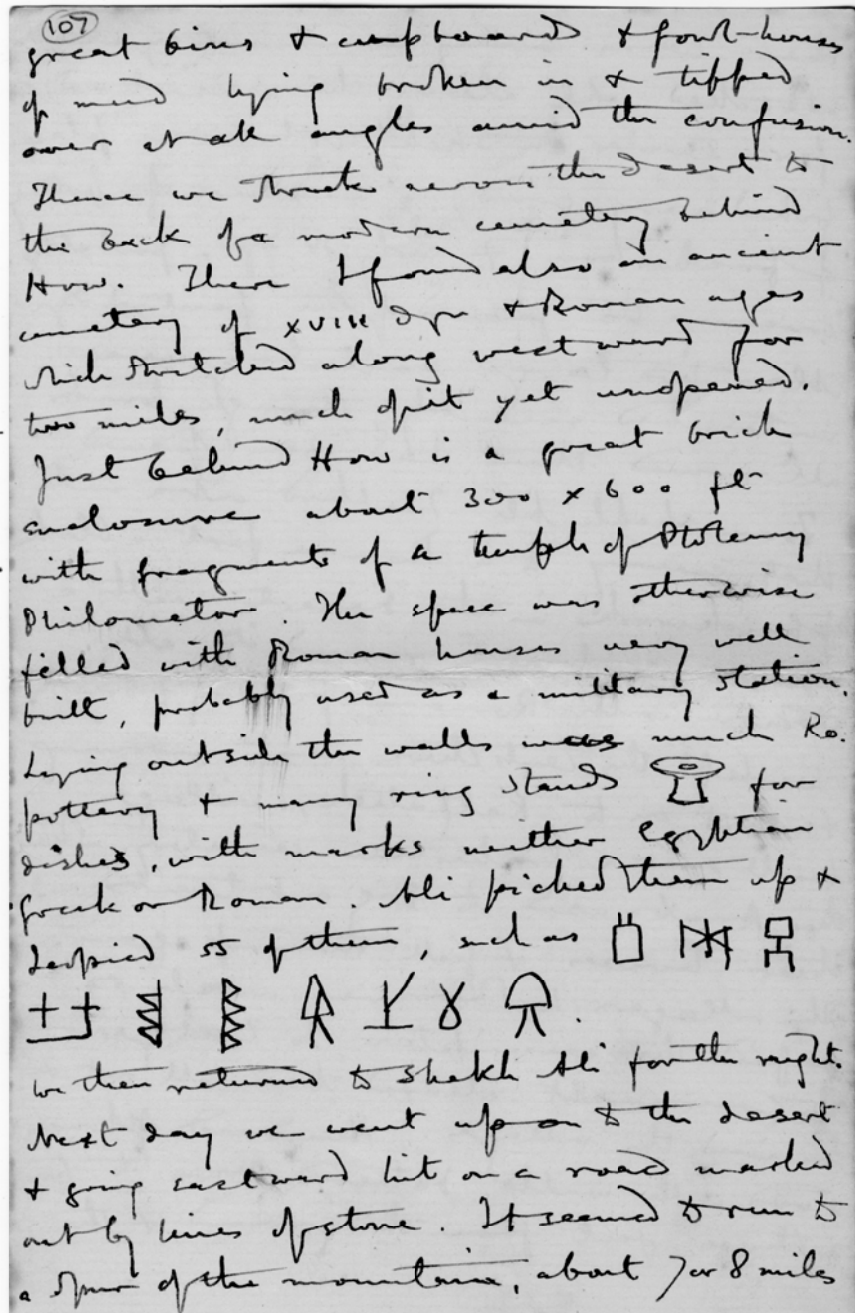 107
great bins & cupboards & fowl-houses
of mud lying broken in & tipped
over at all angles amid the confusion.
Thence we struck across the desert to
the back of a modern cemetery behind
How. There I found also an ancient
cemetery of XVIII dyn & Roman ages
which stretched along westward for
two miles, much of it yet unopened.
Just behind How is a great brick
enclosure about 300 x 600 ft
with fragments of a temple of Ptolemy
Philometor. The space was otherwise
filled with Roman houses very well
built, probably used as a military station.
Lying outside the walls was much Ro.
pottery & many ring stands for
dishes, with marks neither Egyptian
Greek or Roman. Ali picked them up &
I copied 55 of them, such as
We then returned to Shekh Ali for the night.
Next day we went up on to the desert
& going eastward hit on a road marked
out by lines of stone. It seemed to run to
a spur of the mountains, about 7 or 8 miles